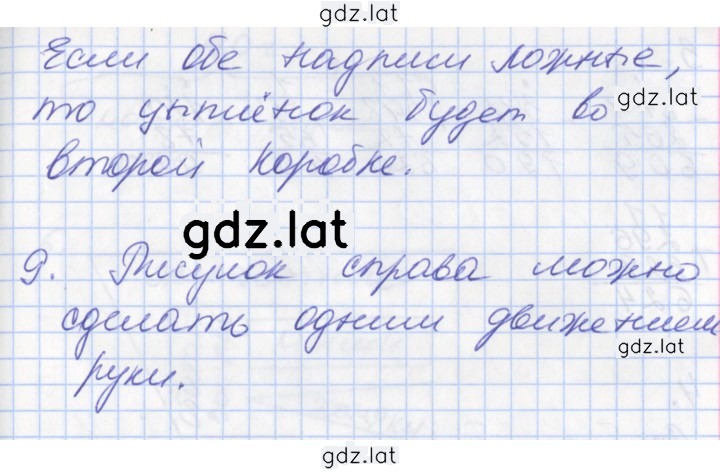 gdz.lat
Если обе надписи ложные,
то цыплёнок будет во
gdz.lat
второй коробке.
gdz.lat
9. Рисунок справа можно
сделать одним движением
gdz.lat
руки.
gdz.lat